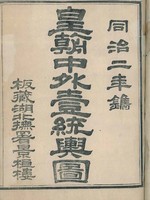 同治二年鐫
皇朝中外壹統輿圖
板藏湖北撫署景桓樓